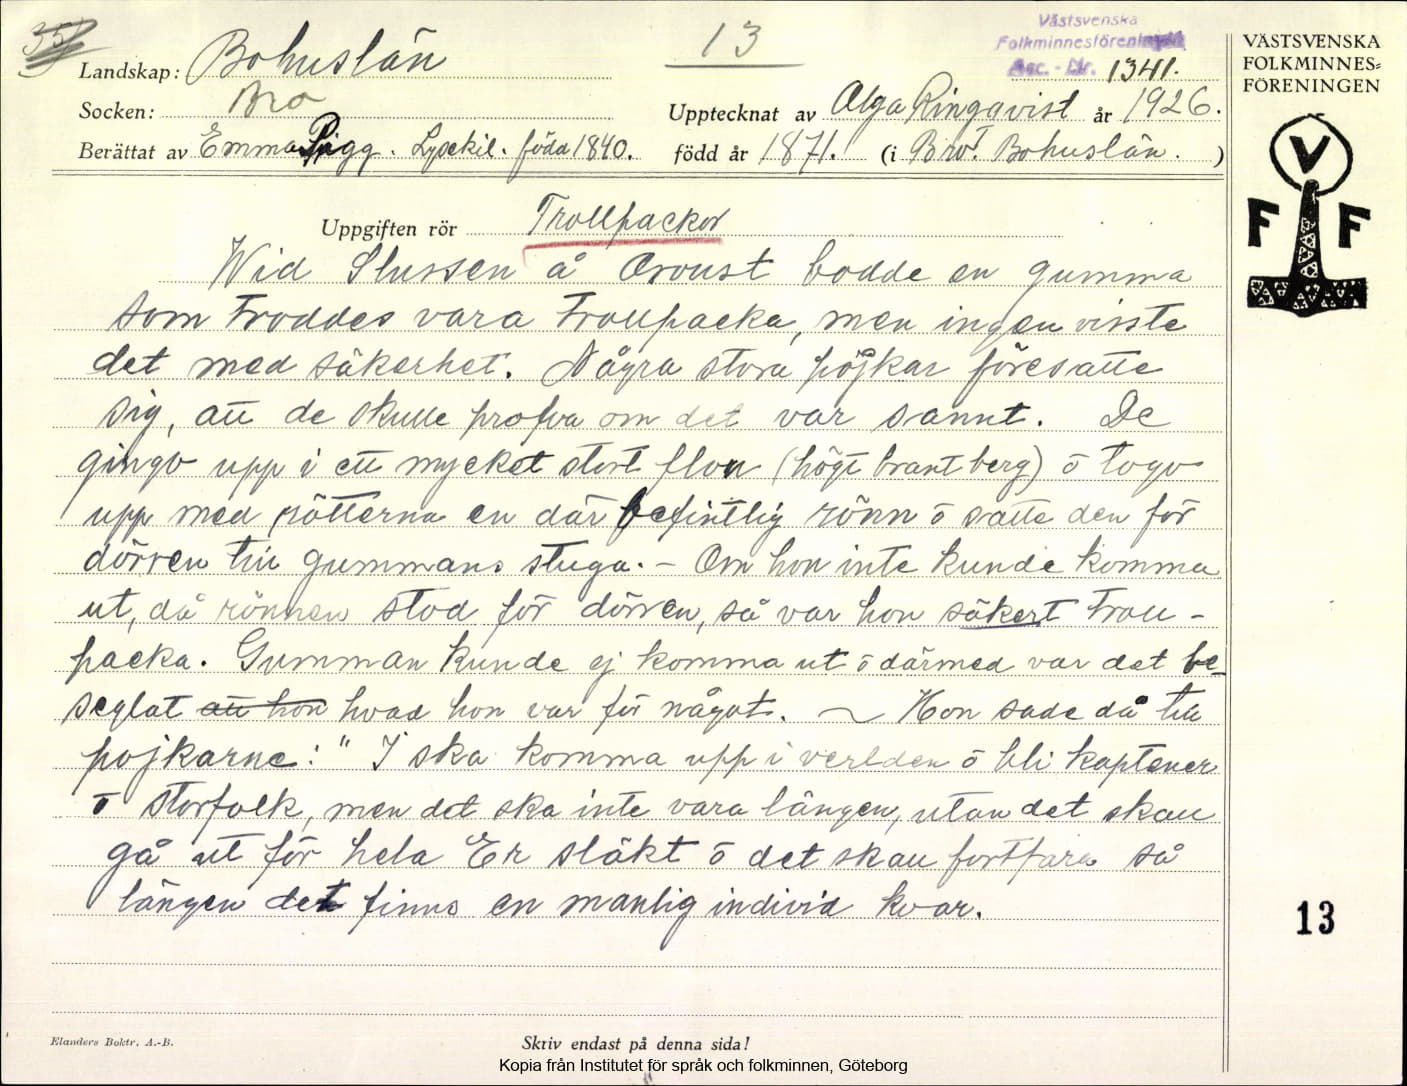 351
13
Västsvenska
Folkminnesföreningen
Acc. - Nr. 1341.
VÄSTSVENSKA
FOLKMINNES=
FÖRENINGEN
V
F F
Landskap: Bohuslän
Socken: Bro
Upptecknat av Olga Ringqvist år 1926.
Berättat av Emma Pigg. Lysekil. föda 1840.
född år 1871. (i Bro. Bohuslän. )
Uppgiften rör Trollpackor
Wid Slussen å Oroust bodde en gumma
som troddes vara trollpacka, men ingen visste
det med säkerhet. Några stora pöjkar föresatte
sig, att de skulle profva om det var sannt. De
gingo upp i ett mycket stort flou (högt brant berg) ō togo
upp med rötterna en där befintlig rönn ō satte den för
dörren till gummans stuga. – Om hon inte kunde komma
ut, då rönnen stod för dörren, så var hon säkert troll-
packa. Gumman kunde ej komma ut ō därmed var det be-
seglat att hon hvad hon var för något. ~ Hon sade då till
pojkarne: "I ska komma upp i verlden ō bli kaptener
ō storfolk, men det ska inte vara längen, utan det skall
gå ut för hela Er släkt ō det skall fortfara så
längen det finns en manlig individ kvar.
13
Elanders Boktr. A.-B.
Skriv endast på denna sida!
Kopia från Institutet för språk och folkminnen, Göteborg